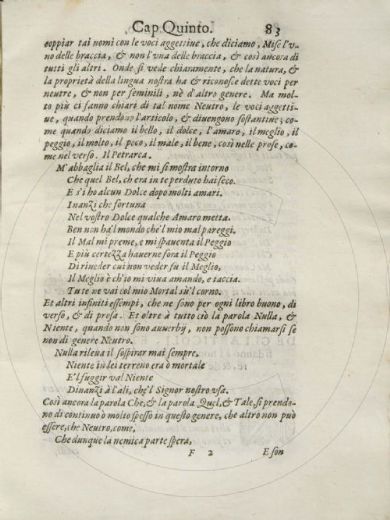 Cap. Quinto. 83
coppiar tai nomi con le voci aggettiue, che diciamo, Mise l'v-
no delle braccia, & non l'vna delle braccia, & così ancora di
tutti gli altri. Onde si vede chiaramente, che la natura, &
la proprietà della lingua nostra ha & riconosce dette voci per
neutre, & non per feminili, nè d'altro genere. Ma mol-
to più ci fanno chiari di tal nome Neutro, le voci aggetti-
ue, quando prendono l'articolo, & diuengono sostantiue; co-
me quando diciamo il bello, il dolce, l'amaro, il meglio, il
peggio, il molto, il poco, il male, il bene, così nelle prose, co-
me nel verso. Il Petrarca.
M'abbaglia il Bel, che mi si mostra intorno
Che quel Bel, ch'era in te perduto hai seco.
E s'i ho alcun Dolce dopo molti amari.
Inanzi che fortuna
Nel vostro Dolce qualche Amaro metta.
Ben non ha'l mondo che'l mio mal pareggi.
Il Mal mi preme, e mi spauenta il Peggio
E più certezza hauerne fora il Peggio
Di riueder cui non veder fu il Meglio,
Il Meglio è ch'io mi viua amando, e taccia.
Tu te ne vai col mio Mortal su'l corno.
Et altri infiniti essempi, che ne sono per ogni libro buono, di
verso, & di prosa. Et oltre à tutto ciò la parola Nulla, &
Niente, quando non sono auuerbij, non possono chiamarsi se
non di genere Neutro.
Nulla rileua il sospirar mai sempre.
Niente in lei terreno era ò mortale
E'l fuggir val Niente
Dinanzi à l'ali, che'l Signor nostro vsa.
Così ancora la parola Che, & la parola Quel, & Tale, si prendo-
no di continuo ò molto spesso in questo genere, che altro non può
essere, che Neutro, come,
Che dunque la nemica parte spera,
F 2 E son